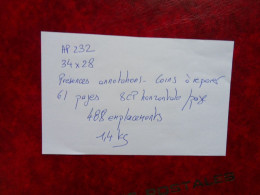 AP 232
34 x 28
Presences annotations. Coins à réparer
61 pages 8 CP horizontale / page
488 emplacements
1,4 kg